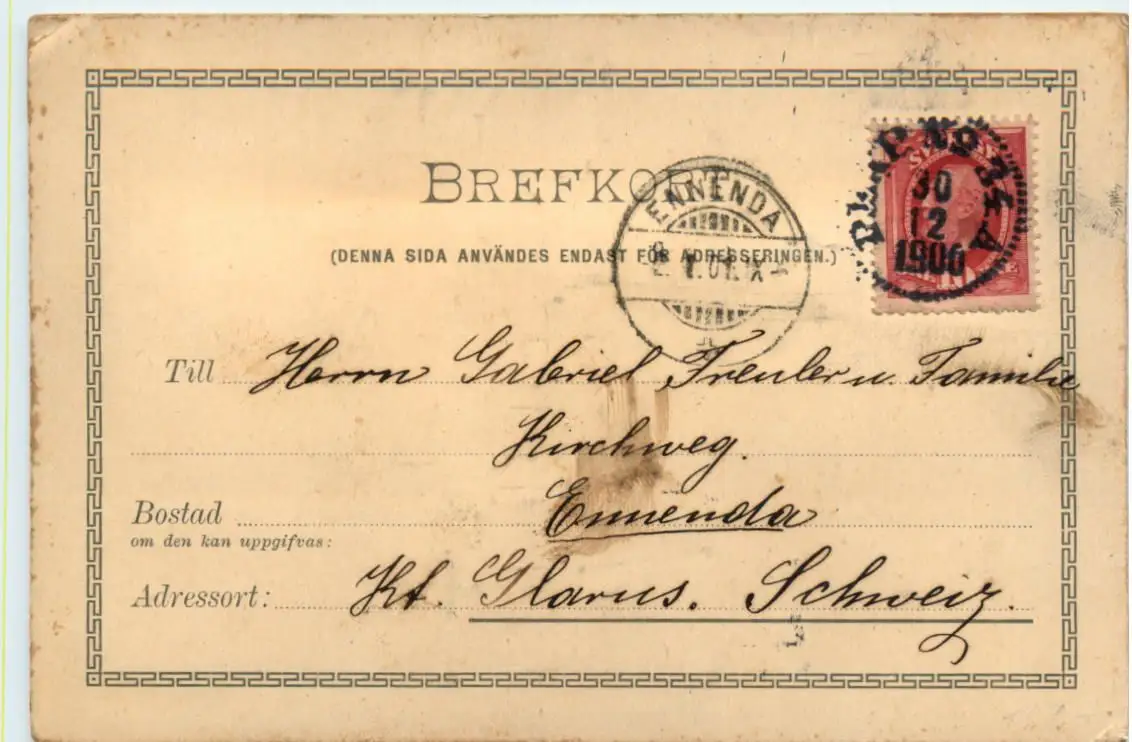 BREFKORT
(DENNA SIDA ANVÄNDES ENDAST FÖR ADRESSERINGEN.)
ENNENDA
1.01.IX
PLKP.
34 A
30
12
1900
SVERIGE
10
Till Herrn Gabriel Freuler u. Familie
Kirchweg.
Bostad Ennenda
om den kan uppgifvas:
Adressort: Kt. Glarus. Schweiz.